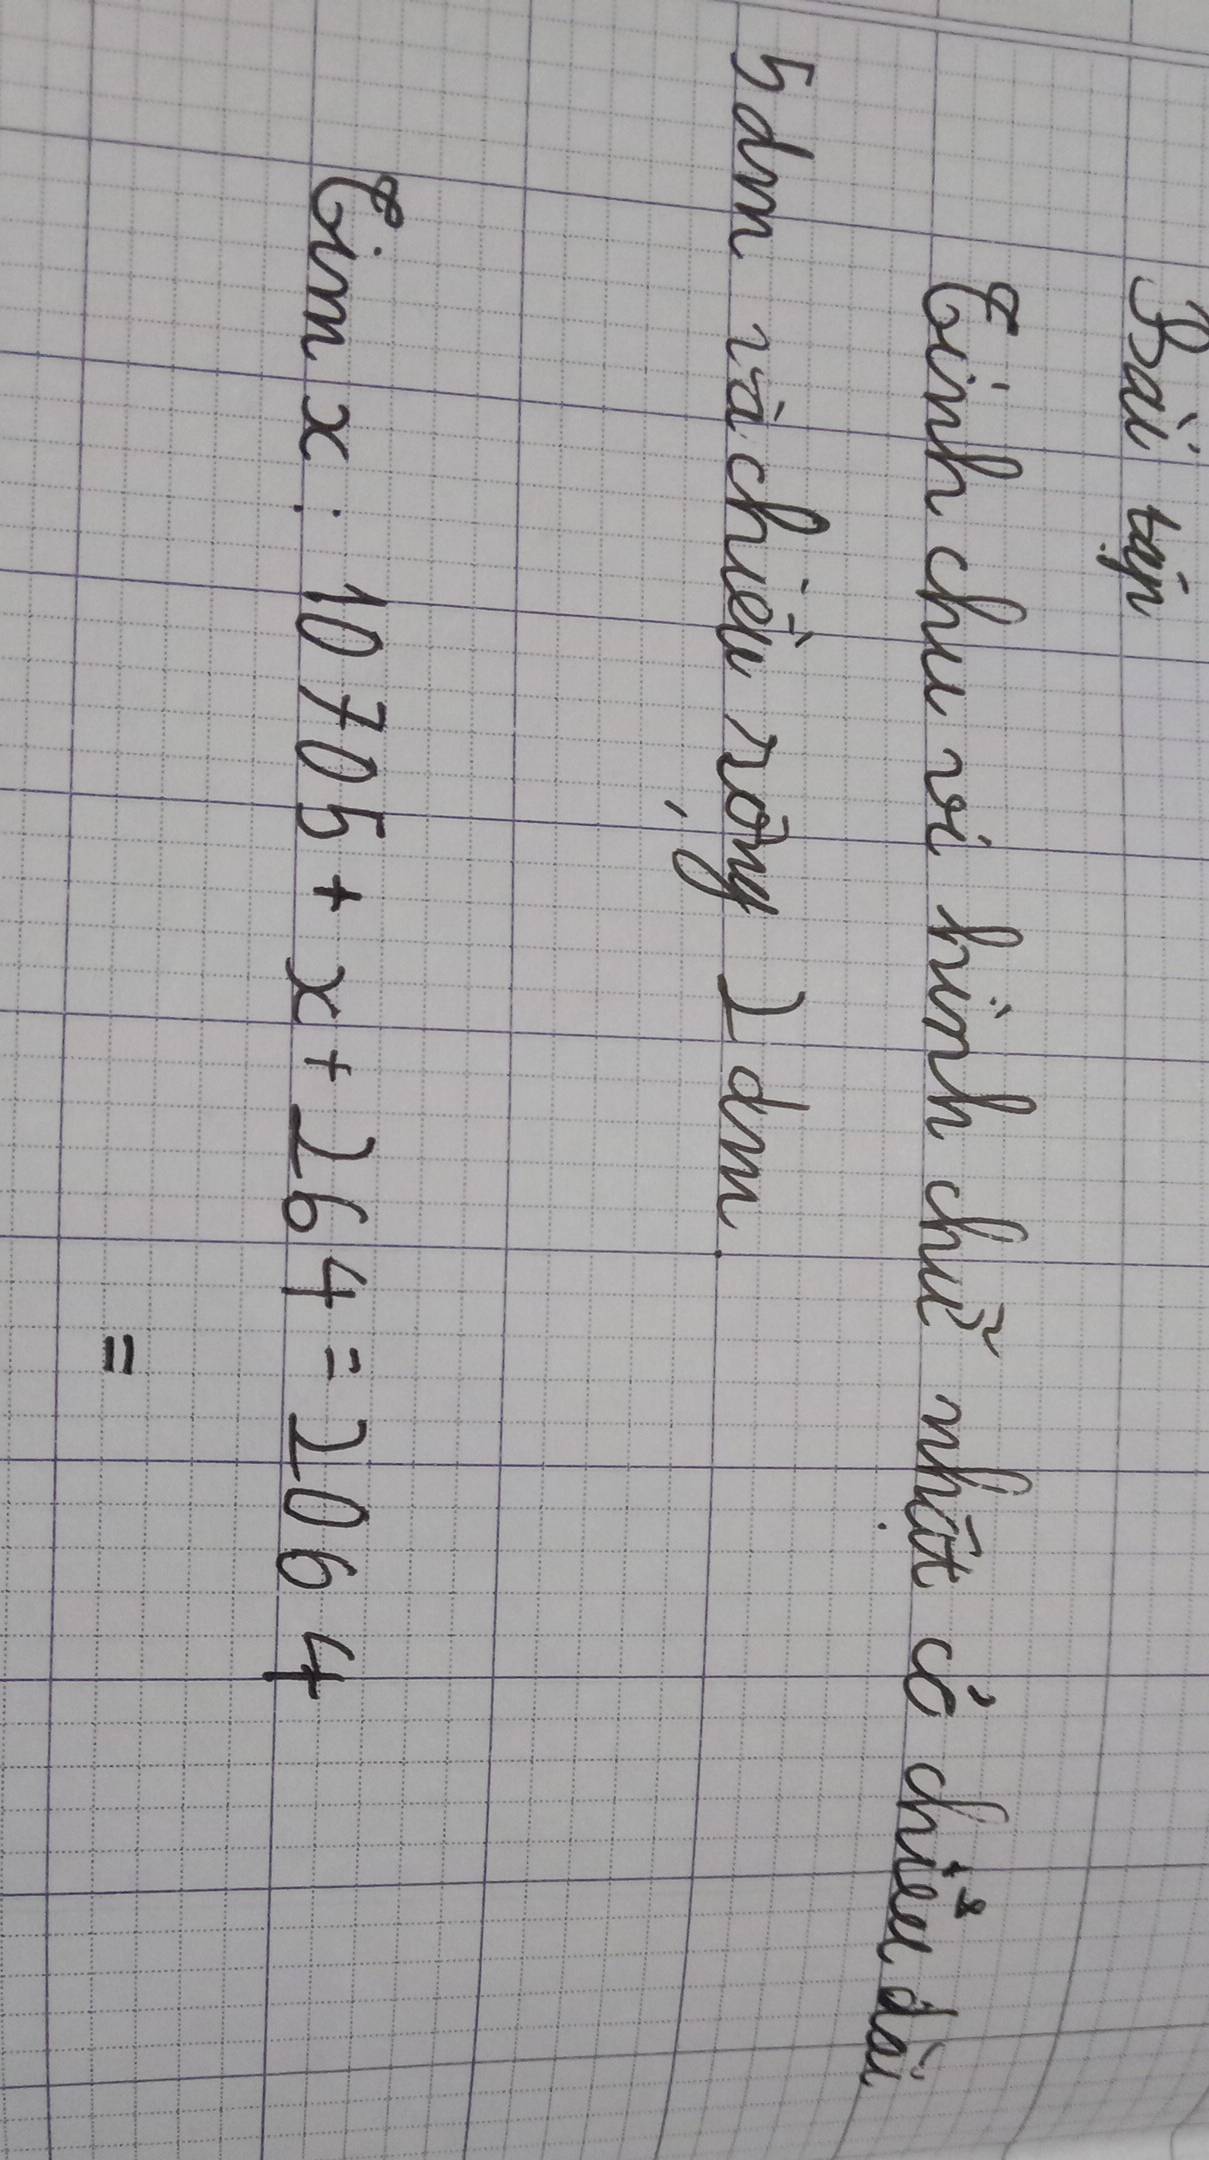 Bài tập
Tính chu vi hình chữ nhật có chiều dài
5 dm và chiều rộng 2 dm.
Tìm x : 10 705 + x + 264 = 206 4
=